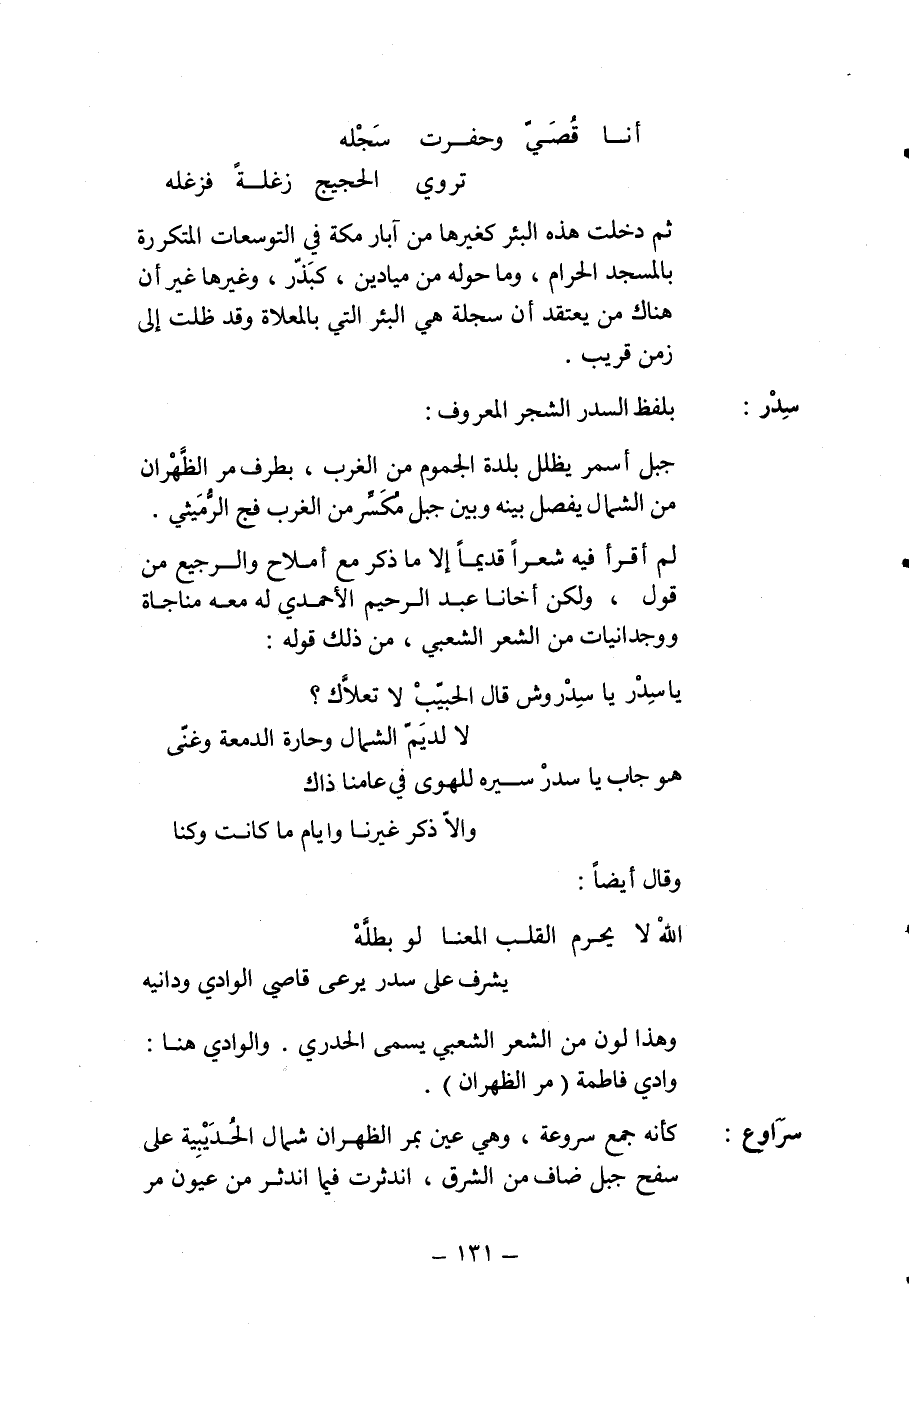 أنـــا قُصَيّ وحفــرت سَجْله
تروي الحجيج زغلــةً فزغله
ثم دخلت هذه البئر كغيرها من آبار مكة في التوسعات المتكررة
بالمسجد الحرام ، وما حوله من ميادين ، كبَذّر ، وغيرها غير أن
هناك من يعتقد أن سجلة هي البئر التي بالمعلاة وقد ظلت إلى
زمن قريب .
سِدْر : بلفظ السدر الشجر المعروف :
جبل أسمر يظلل بلدة الجموم من الغرب ، بطرف مر الظَّهْران
من الشمال يفصل بينه وبين جبل مُكَسَّر من الغرب فج الرُّمَيثي .
لم أقرأ فيه شعراً قديماً إلا ما ذكر مع أملاح والرجيع من
قول ، ولكن أخانا عبد الرحيم الأحمدي له معه مناجاة
ووجدانيات من الشعر الشعبي ، من ذلك قوله :
يا سِدْر يا سِدْر وش قال الحبيّبْ لا تعلاَّك ؟
لا لديَمّ الشمال وحارة الدمعة وغنّى
هو جاب يا سدرْ ســيره للهوى في عامنا ذاك
والاّ ذكر غيرنا وايام ما كانت وكنا
وقال أيضاً :
اللهْ لا يحرم القلب المعنا لو بطلَّهْ
يشرف على سدر يرعى قاصي الوادي ودانيه
وهذا لون من الشعر الشعبي يسمى الخدري . والوادي هنا :
وادي فاطمة ( مر الظهران ) .
سرَاوع : كأنه جمع سروعة ، وهي عين بمر الظهران شمال الحُدَيْبِية على
سفح جبل ضاف من الشرق ، اندثرت فيما اندثر من عيون مر
– ١٣١ –